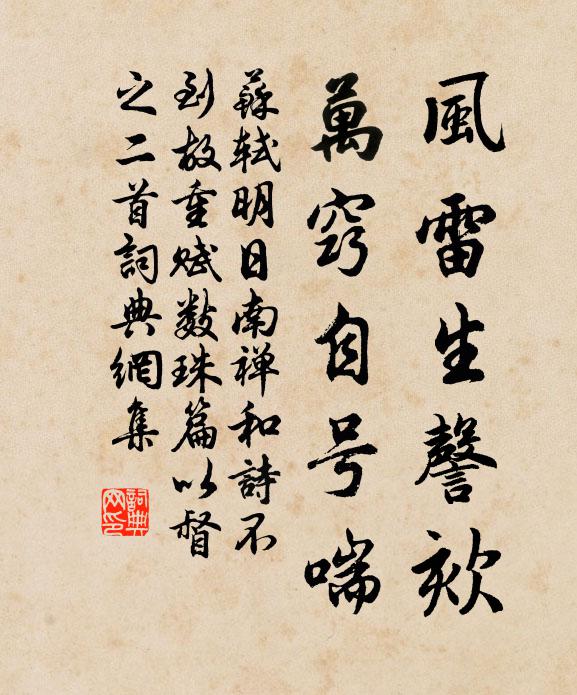 風雷生謦欬
萬竅自号喘
蘇軾明日南禅和詩不
到故重賦数珠篇以督
之二首詞典網集
詞典网印